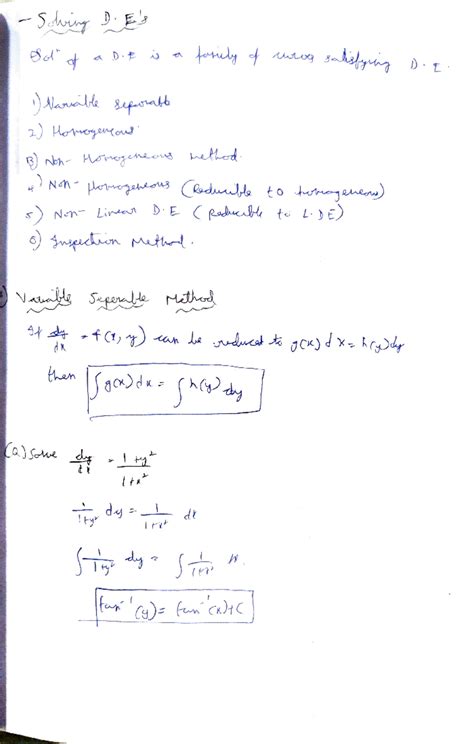 - Solving D.E's
Solⁿ of a D.E is a family of curves satisfying D.E.
1) Variable seperable
2) Homogeneous
3) Non-Homogeneous method.
4) Non-Homogeneous (Reducible to homogeneous)
5) Non-Linear D.E (Reducible to L.DE)
6) Inspection Method.
Variable Seperable Method
If dy/dx = f(x, y) can be reduced to g(x)dx = h(y)dy
then ∫g(x)dx = ∫h(y) dy
(a) Solve dy/dx = 1+y²/1+x²
1/1+y² dy = 1/1+x² dx
∫ 1/1+y² dy = ∫ 1/1+x² dx.
tan⁻¹(y) = tan⁻¹(x)+C